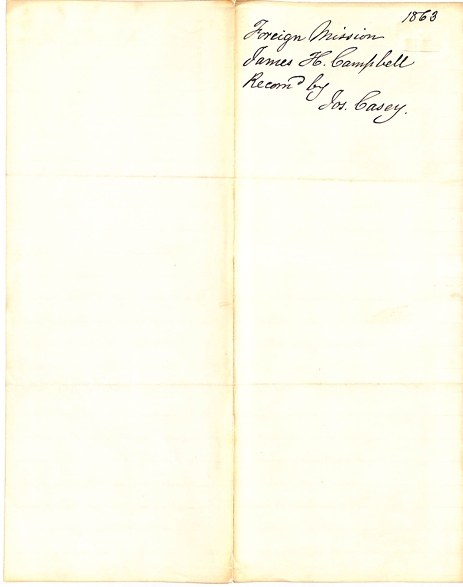 1863
Foreign Mission
James H. Campbell
Recomd by
Jos. Casey.